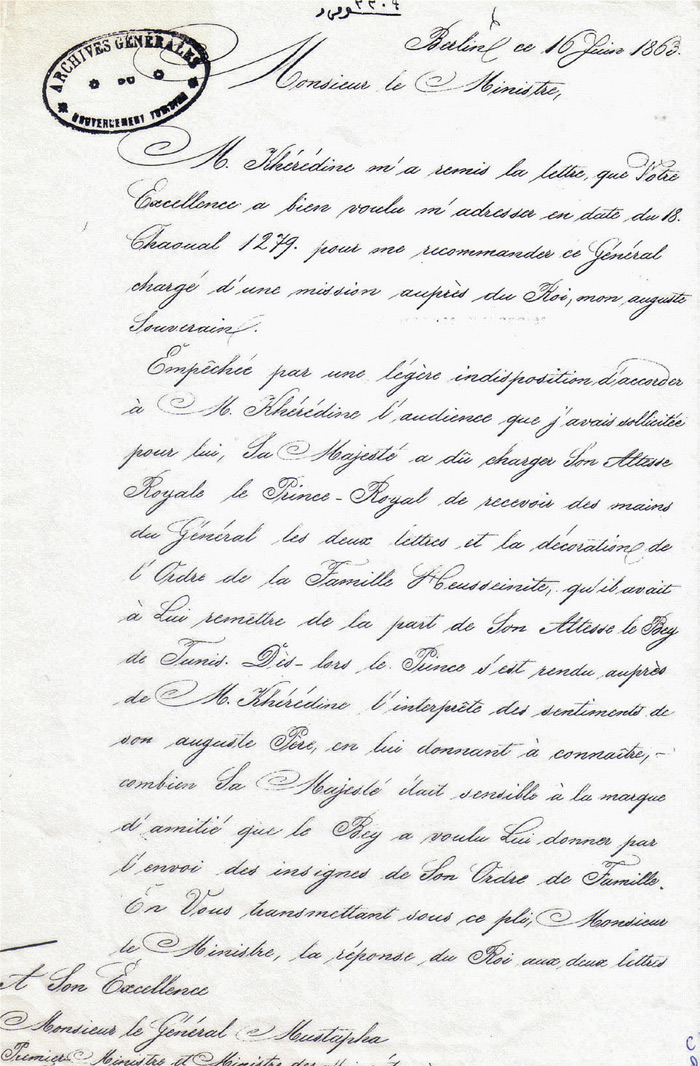 ٣٣٠٤
ARCHIVES GÉNÉRALES
DU
GOUVERNEMENT TUNISIEN
Berlin ce 16 Juin 1863.
Monsieur le Ministre,
M. Khérédine m'a remis la lettre, que Votre
Excellence a bien voulu m'adresser en date du 18.
Chaoual 1279. pour me recommander ce Général
chargé d'une mission auprès du Roi, mon auguste
Souverain.
Empêchée par une légère indisposition d'accorder
à M. Khérédine l'audience que j'avais sollicitée
pour lui, Sa Majesté a dû charger Son Altesse
Royale le Prince-Royal de recevoir des mains
du Général les deux lettres et la décoration de
l'Ordre de la Famille Heusseinite, qu'il avait
à Lui remettre de la part de Son Altesse le Bey
de Tunis. Dès-lors le Prince s'est rendu auprès
de M. Khérédine l'interprête des sentiments de
son auguste Père, en lui donnant à connaître, -
combien Sa Majesté était sensible à la marque
d'amitié que le Bey a voulu Lui donner par
l'envoi des insignes de Son Ordre de Famille.
En Vous transmettant sous ce pli, Monsieur
le Ministre, la réponse du Roi aux deux lettres
A Son Excellence
Monsieur le Général Mustapha
Premier Ministre et Ministre des